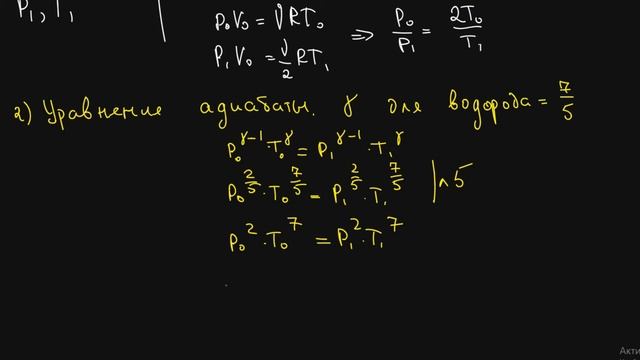 P₁, T₁
P₀V₀ = νRT₀
P₁V₀ = ν/2 RT₁
=> P₀/P₁ = 2T₀/T₁
2) Уравнение адиабаты. γ для водорода = 7/5
P₀^(γ-1) · T₀^γ = P₁^(γ-1) · T₁^γ
P₀^(2/5) · T₀^(7/5) = P₁^(2/5) · T₁^(7/5) | ^5
P₀² · T₀⁷ = P₁² · T₁⁷